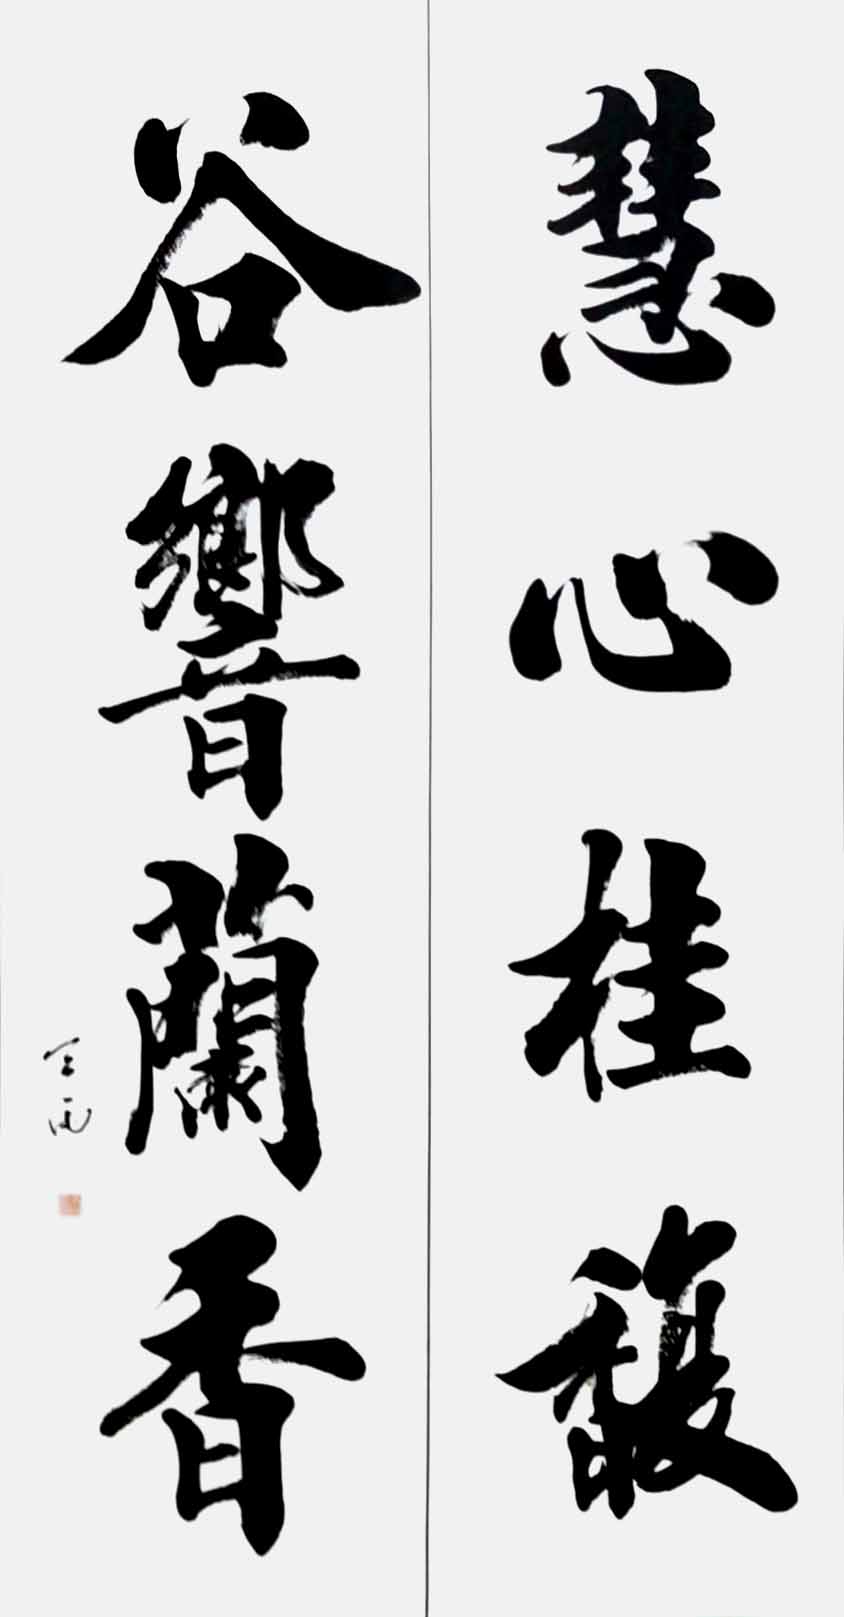 慧心桂馥
谷響蘭香